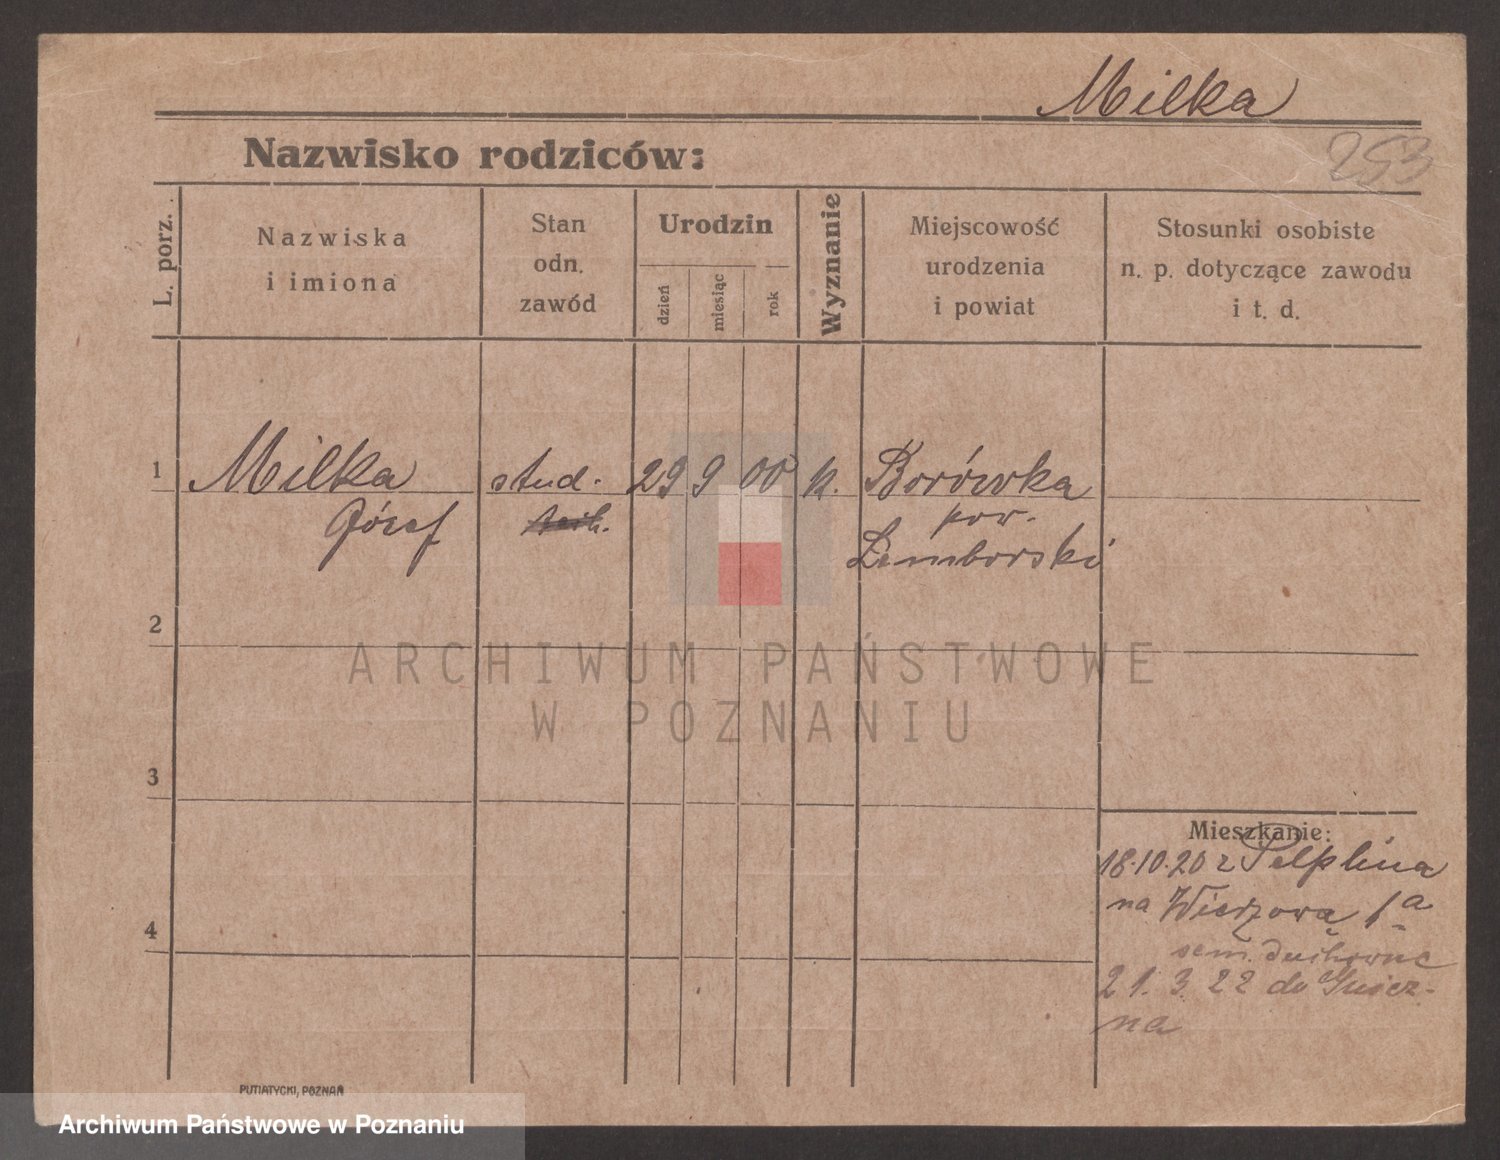 Milka
253
Nazwisko rodziców:
L. porz.
Nazwiska
i imiona
Stan
odn.
zawód
Urodzin
dzień
miesiąc
rok
Wyznanie
Miejscowość
urodzenia
i powiat
Stosunki osobiste
n. p. dotyczące zawodu
i t. d.
1
Milka
Józef
stud.
29
9
00
k.
Borówka
pow.
Zemborski
2
3
4
Mieszkanie:
18.10.20 z Pelplina
na Wieżową 1a
sem. duchowne
21.3.22 do Gniez-
na
PUTIATYCKI, POZNAŃ
ARCHIWUM PAŃSTWOWE
W POZNANIU
Archiwum Państwowe w Poznaniu